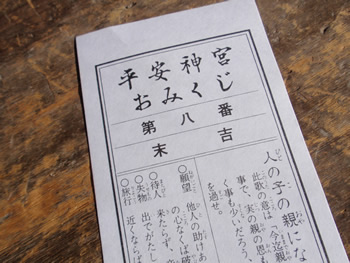 平安神宮
おみくじ
第八番
末吉
人の子の親にな
此歌の意は「今迄親
事で、実の親の恩
く事も少いだろう、
を過せ。
○願望 他人の助けあ
の心なくば破
○待人 来たらず、
○失物 出でがたし
○旅行 近くならば